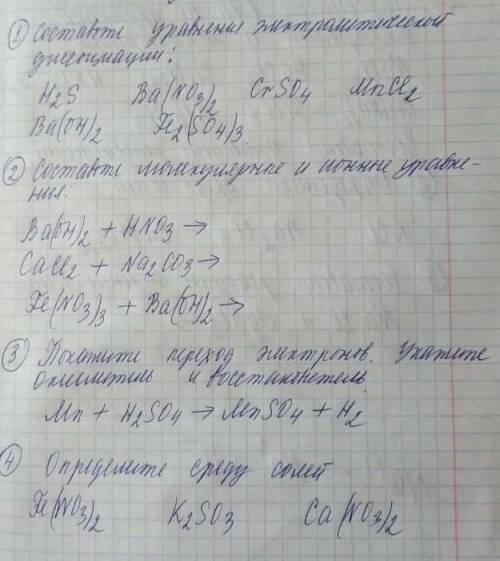 ① Составьте уравнения электролитической
диссоциации:
H₂S Ba(NO₃)₂ CrSO₄ MnCl₂
Ba(OH)₂ Fe₂(SO₄)₃.
② Составьте молекулярное и ионные уравне-
ния.
Ba(OH)₂ + HNO₃ →
CaCl₂ + Na₂CO₃ →
Fe(NO₃)₃ + Ba(OH)₂ →
③ Покажите переход электронов. Укажите
окислитель и восстановитель
Mn + H₂SO₄ → MnSO₄ + H₂
④ Определите среду солей
Fe(NO₃)₂ K₂SO₃ Ca(NO₃)₂